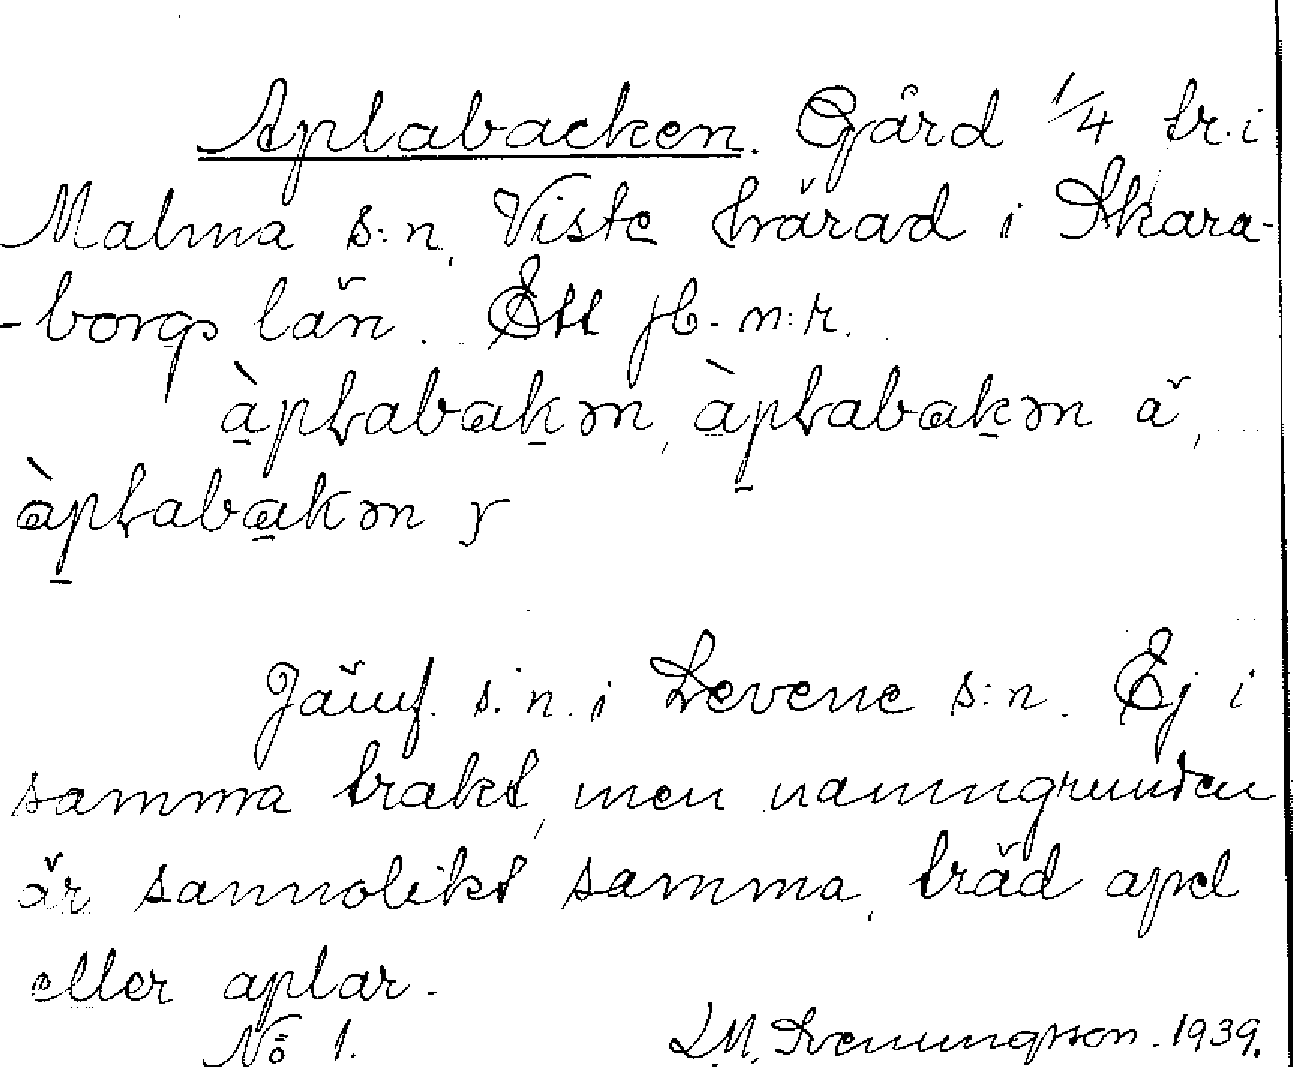 Aplabacken. Gård 1/4 tr. i
Malma s:n, Viste härad i Skara-
-borgs län. Ett jb. n:r.
àpɫabakən, àpɫabakən ä,
àpɫabakən y
Jämf. s. n. i Levene s:n. Ej i
samma trakt, men namngrunden
är sannolikt samma, träd apel
eller aplar.
No 1. L.M. Svenungsson. 1939.